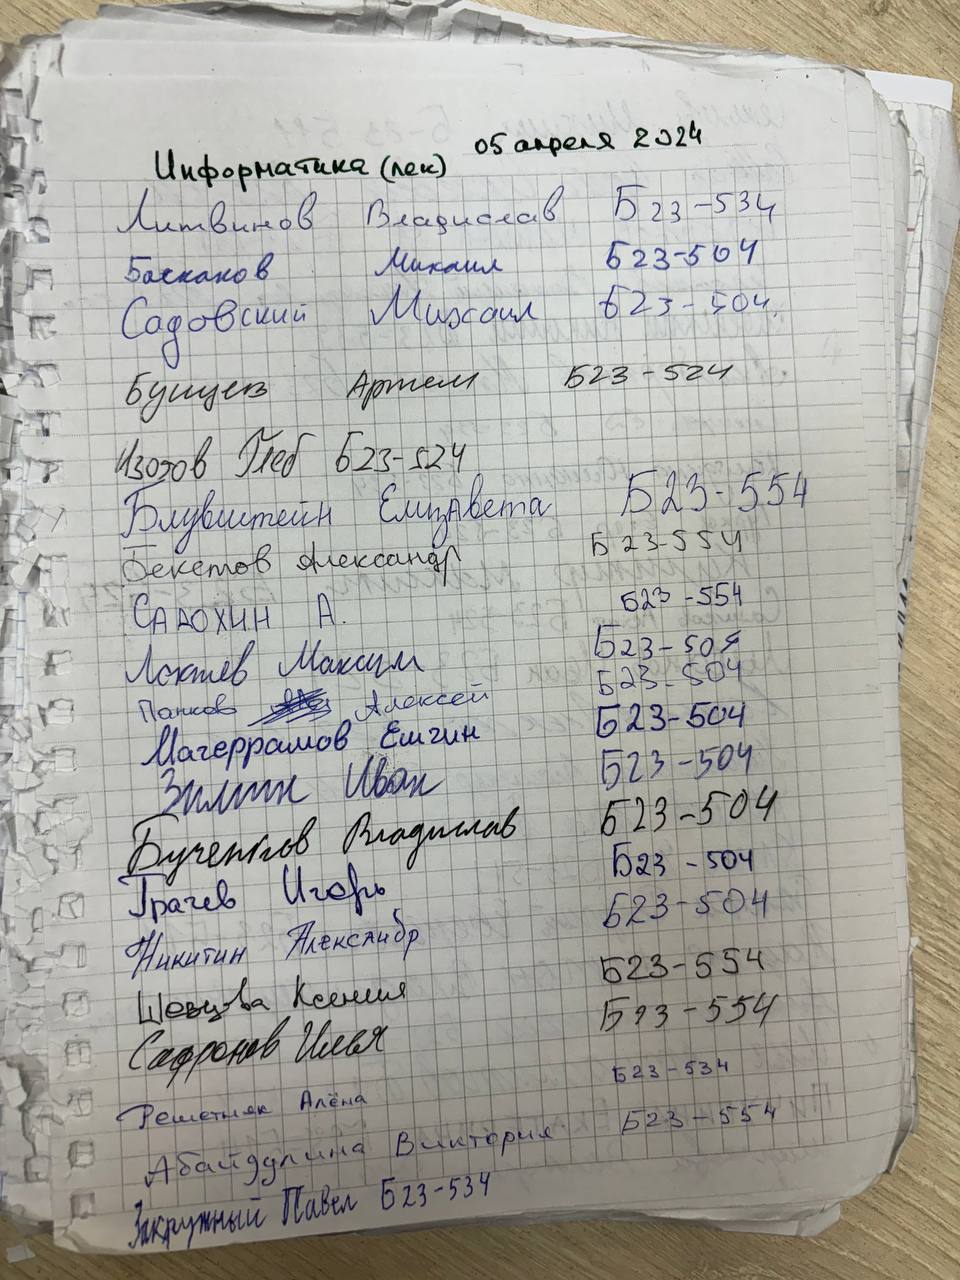 Информатика (лек) 05 апреля 2024
Литвинов Владислав Б23-534
Баскаков Михаил Б23-504
Садовский Михаил Б23-504.
Артем Б23-524
Изотов Глеб Б23-524
Блувштейн Елизавета Б23-554
Бекетов Александр Б23-554
Садохин А. Б23-554
Локтев Максим Б23-504
Панков Алексей Б23-504
Магеррамов Емгин Б23-504
Зимин Иван Б23-504
Бученков Владислав Б23-504
Грачев Игорь Б23-504
Никитин Александр Б23-504
Шевцова Ксения Б23-554
Сафронов Илья Б23-554
Решетняк Алёна Б23-534
Абайдулина Виктория Б23-554
Закружный Павел Б23-534